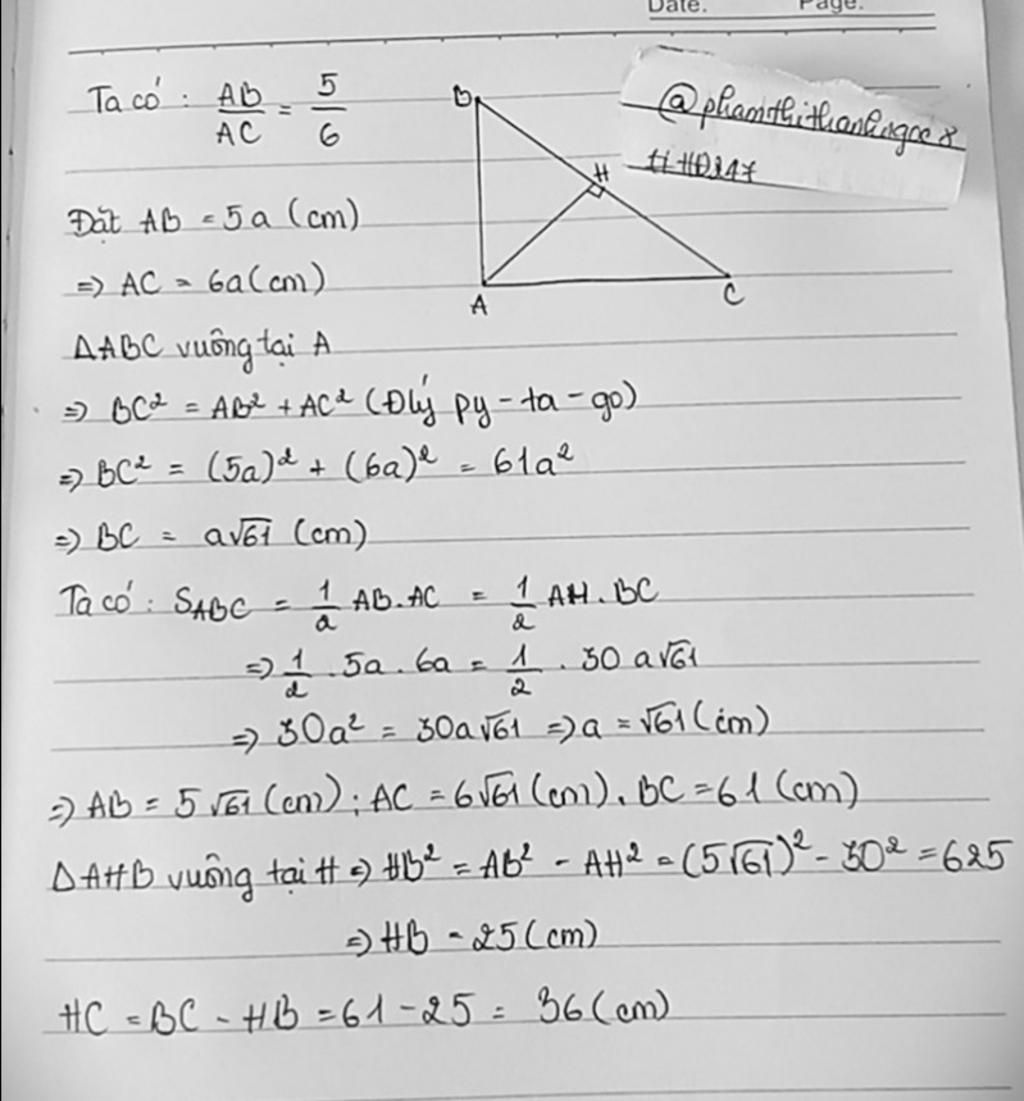 Date. Page.
Ta có: AB/AC = 5/6
@phamthithanhngoc8
Đặt AB = 5a (cm)
=> AC = 6a (cm)
B
H
A
C
ΔABC vuông tại A
=> BC² = AB² + AC² (Đlý py-ta-go)
=> BC² = (5a)² + (6a)² = 61a²
=> BC = a√61 (cm)
Ta có: S_ABC = 1/2 AB.AC = 1/2 AH.BC
=> 1/2 . 5a . 6a = 1/2 . 30a√61
=> 30a² = 30a√61 => a = √61 (cm)
=> AB = 5√61 (cm); AC = 6√61 (cm). BC = 61 (cm)
ΔAHB vuông tại H => HB² = AB² - AH² = (5√61)² - 30² = 625
=> HB = 25 (cm)
HC = BC - HB = 61 - 25 = 36 (cm)